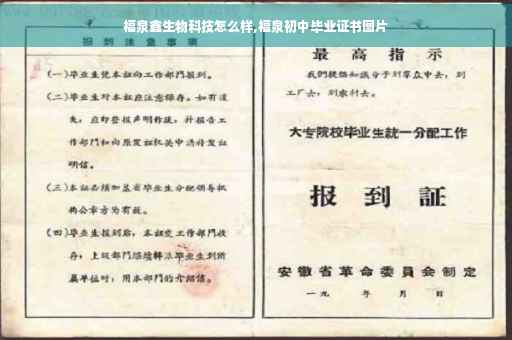 福泉鑫生物科技怎么样,福泉初中毕业证书图片
报到注意事项
(一)毕业生凭本证向工作部门报到。
(二)毕业生对本证应注意保存。如有遗
失，应即登报声明作废，并报告工
作部门和向原发证机关申请补发证
明信。
(三)本证必须加盖省毕业生分配领导机
构公章方为有效。
(四)毕业生报到后，本证交工作部门收
存，上级部门继续转派毕业生到所
属单位时，用本部门的介绍信。
最高指示
我们提倡知识分子到群众中去，到
工厂去，到农村去。
大专院校毕业生統一分配工作
报到証
安徽省革命委員会制定
一九 年 月 日